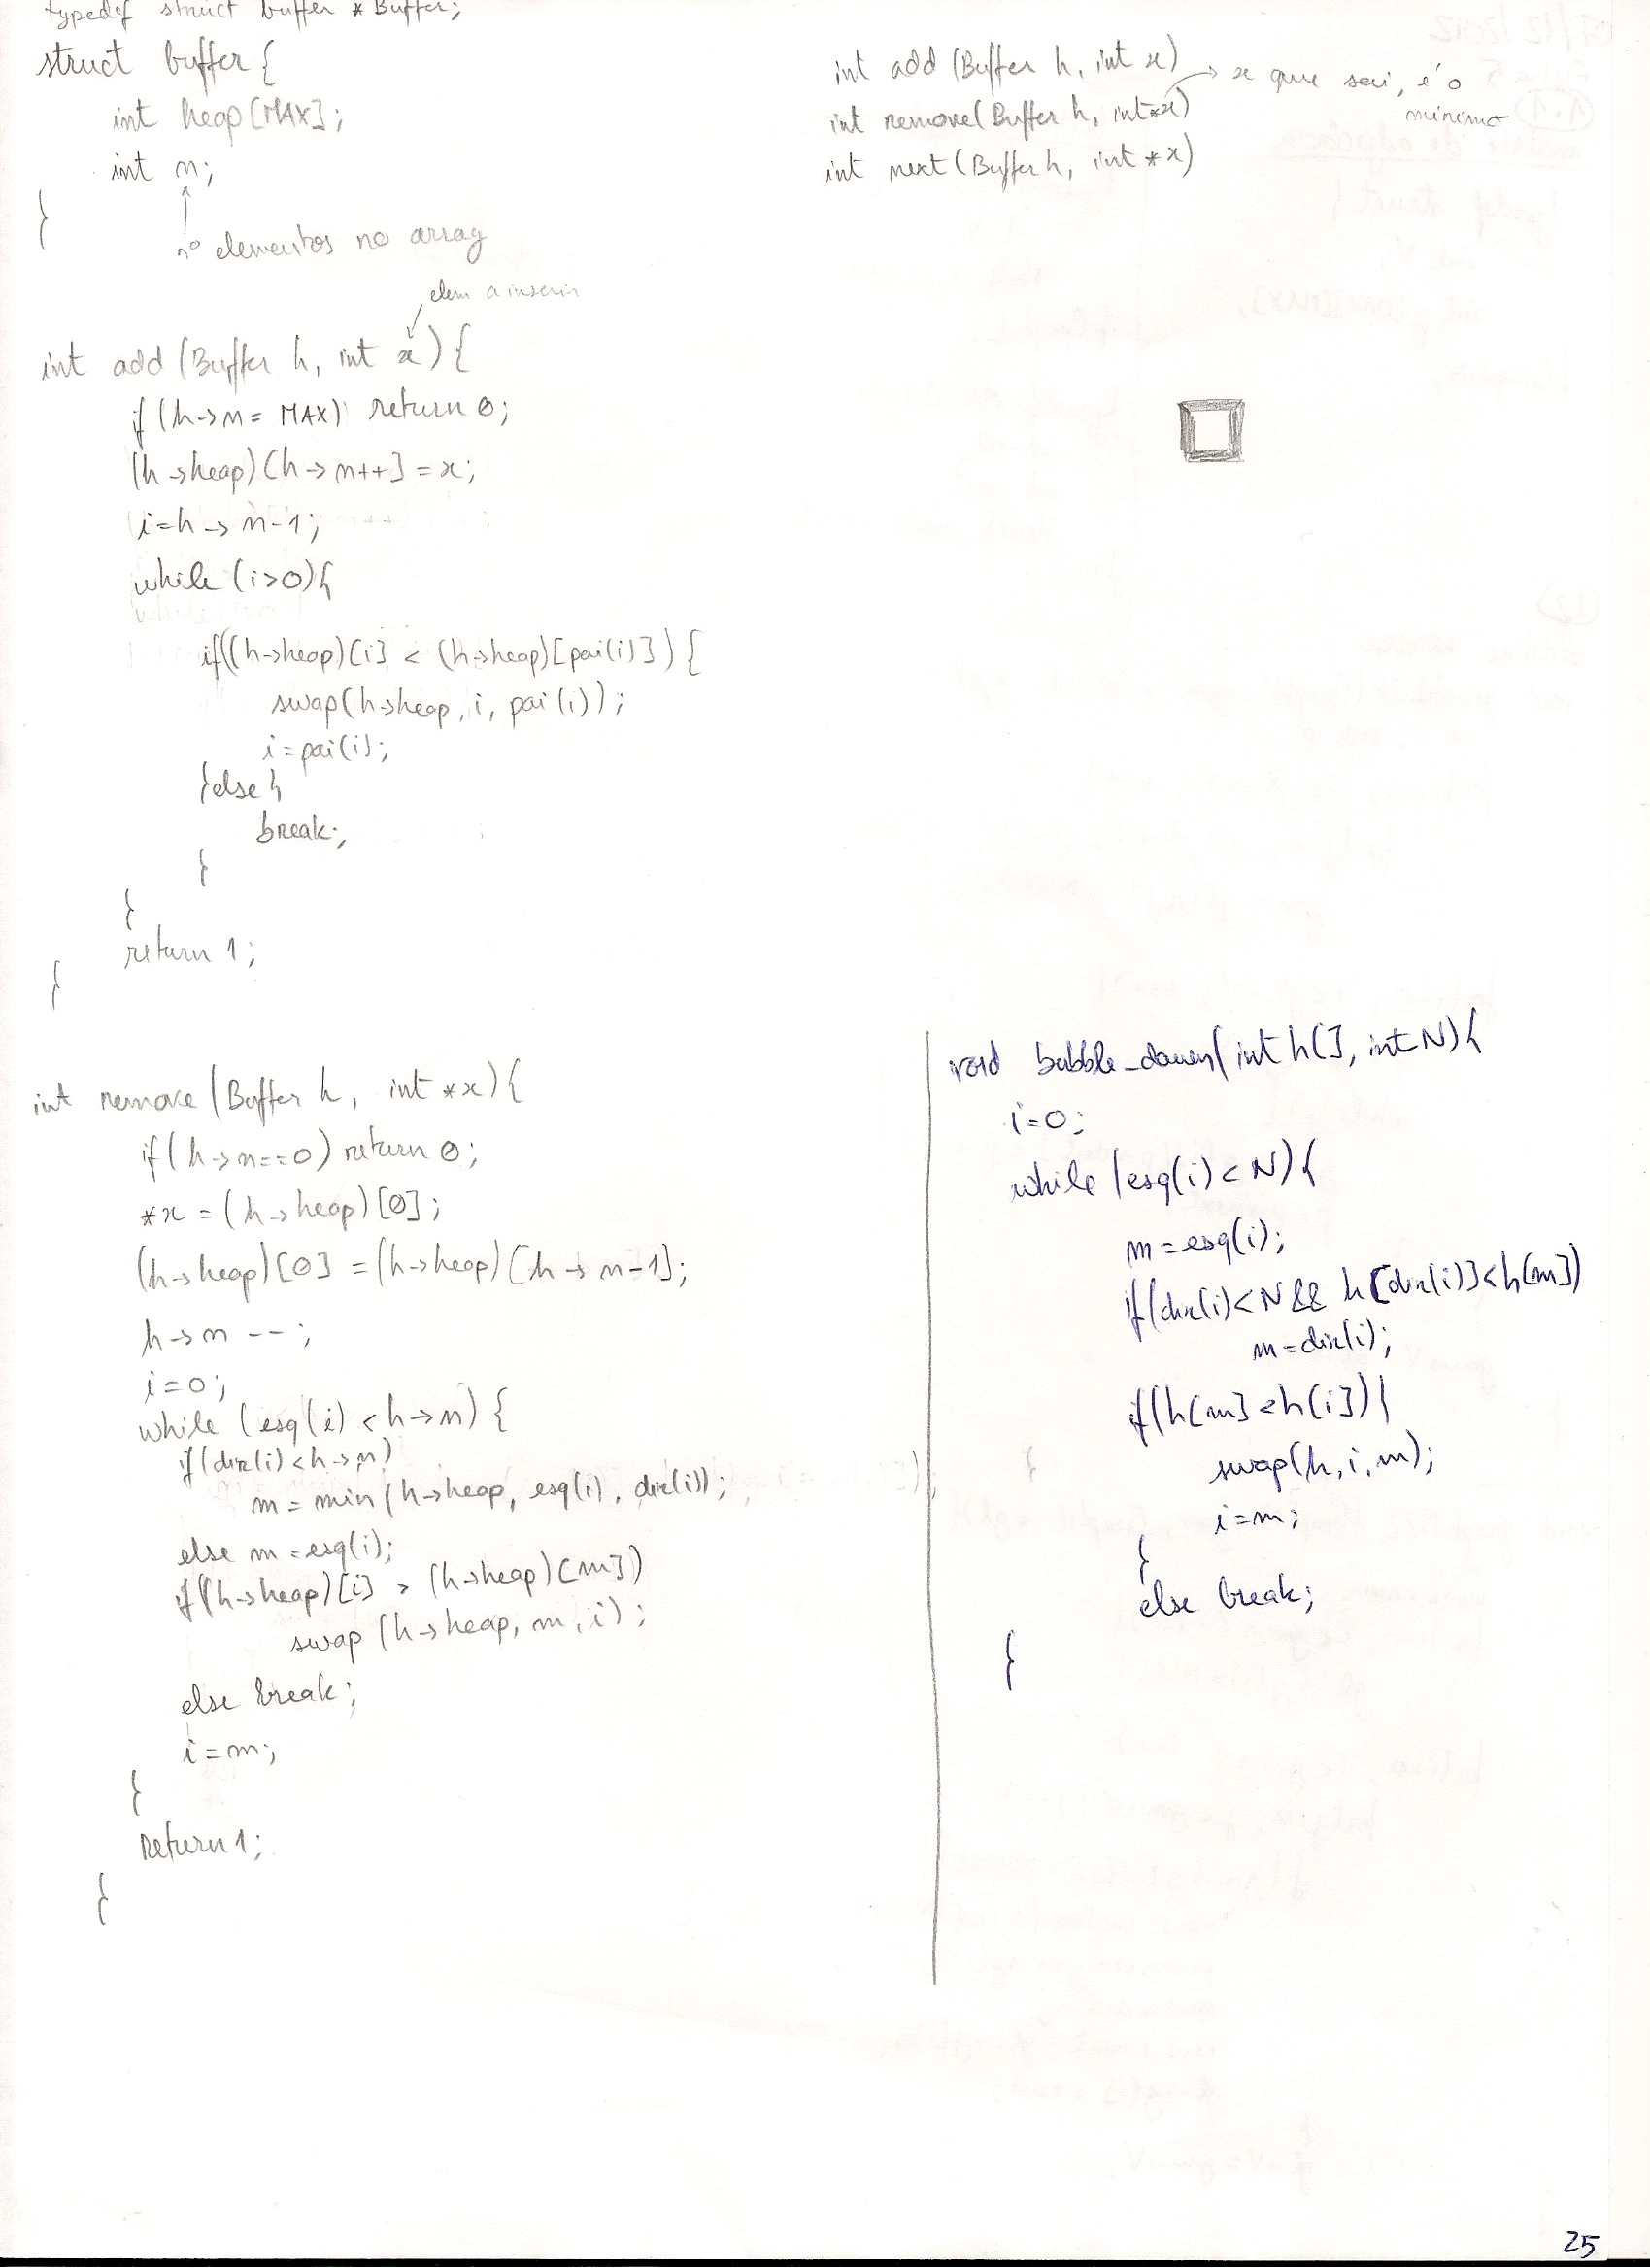 typedef struct buffer * Buffer;
struct buffer {
int heap[MAX];
int n;
}
nº elementos no array
int add (Buffer h, int x)
int remove (Buffer h, int *x) → x que sai, é o
mínimo
int next (Buffer h, int *x)
elem a inserir
int add (Buffer h, int x) {
if (h->n = MAX) return 0;
(h->heap)[h->n++] = x;
i=h->n-1;
while (i>0){
if((h->heap)[i] < (h->heap)[pai(i)]) {
swap(h->heap, i, pai(i));
i=pai(i);
}else{
break;
}
}
return 1;
}
int remove (Buffer h, int *x) {
if (h->n==0) return 0;
*x = (h->heap)[0];
(h->heap)[0] = (h->heap)[h->n-1];
h->n--;
i=0;
while (esq(i) < h->n) {
if(dir(i) < h->n)
m = min(h->heap, esq(i), dir(i));
else m=esq(i);
if((h->heap)[i] > (h->heap)[m])
swap (h->heap, m, i);
else break;
i=m;
}
return 1;
}
void bubble_down(int h[], int N){
i=0;
while (esq(i)<N){
m=esq(i);
if(dir(i)<N && h[dir(i)]<h[m])
m=dir(i);
if(h[m]<h[i]){
swap(h,i,m);
i=m;
}
else break;
}
25